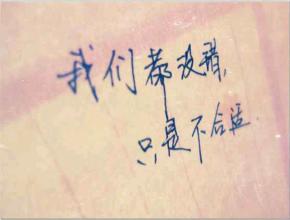 我们都没错，
只是不合适.